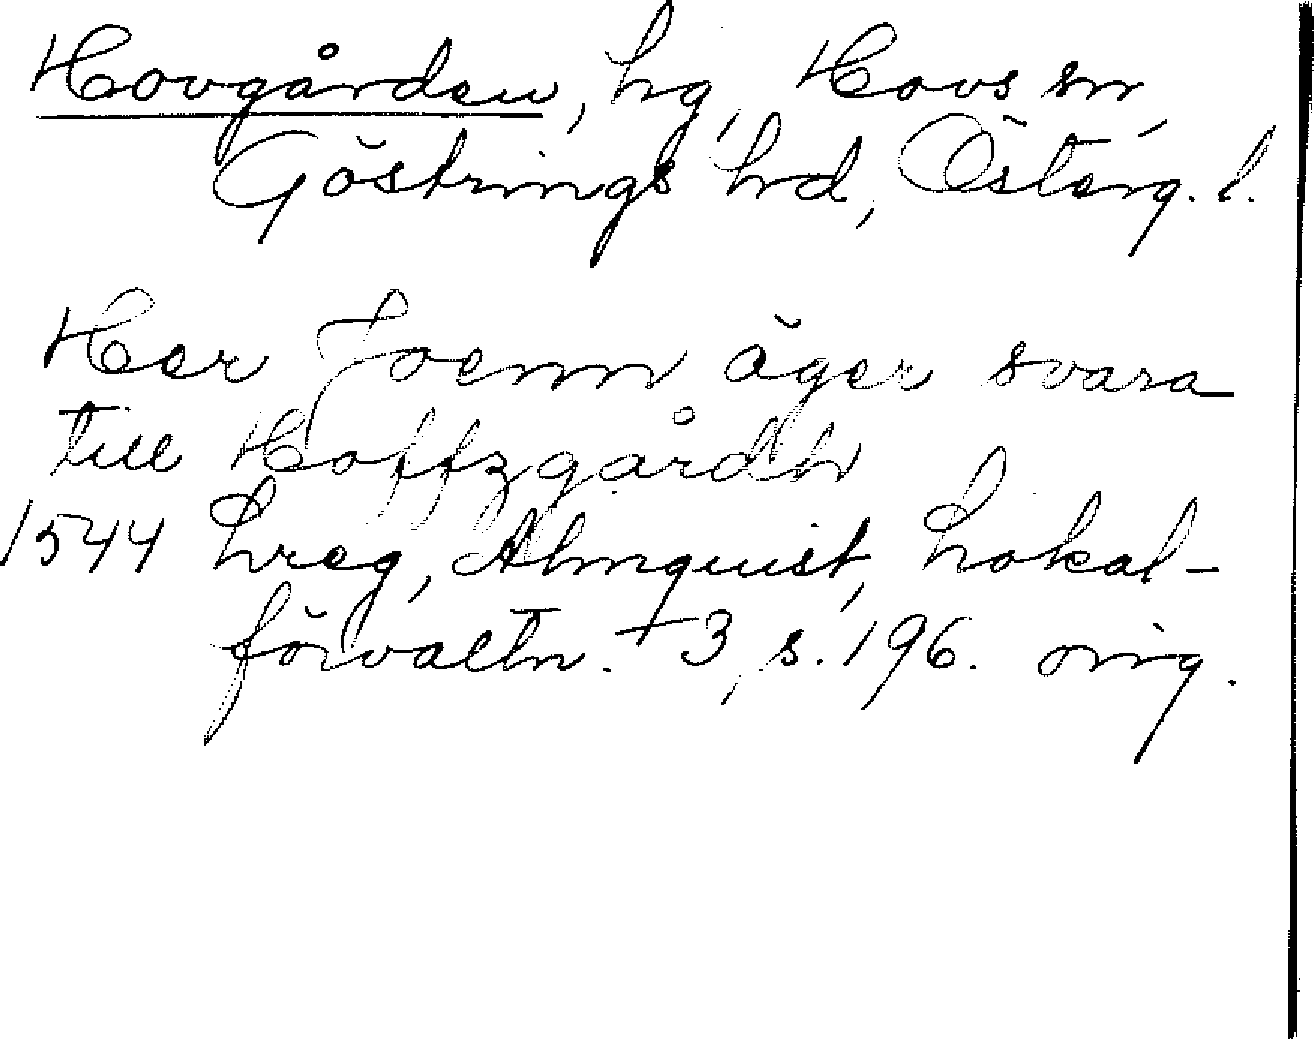 Hovgården, hg, Hovs sn,
Göstrings hd, Österg. l.
Her Joenn äger svara
till Hoffzgårdh
1544 Lreg, Almquist, Lokal-
förvaltn. + 3, s. 196. orig.